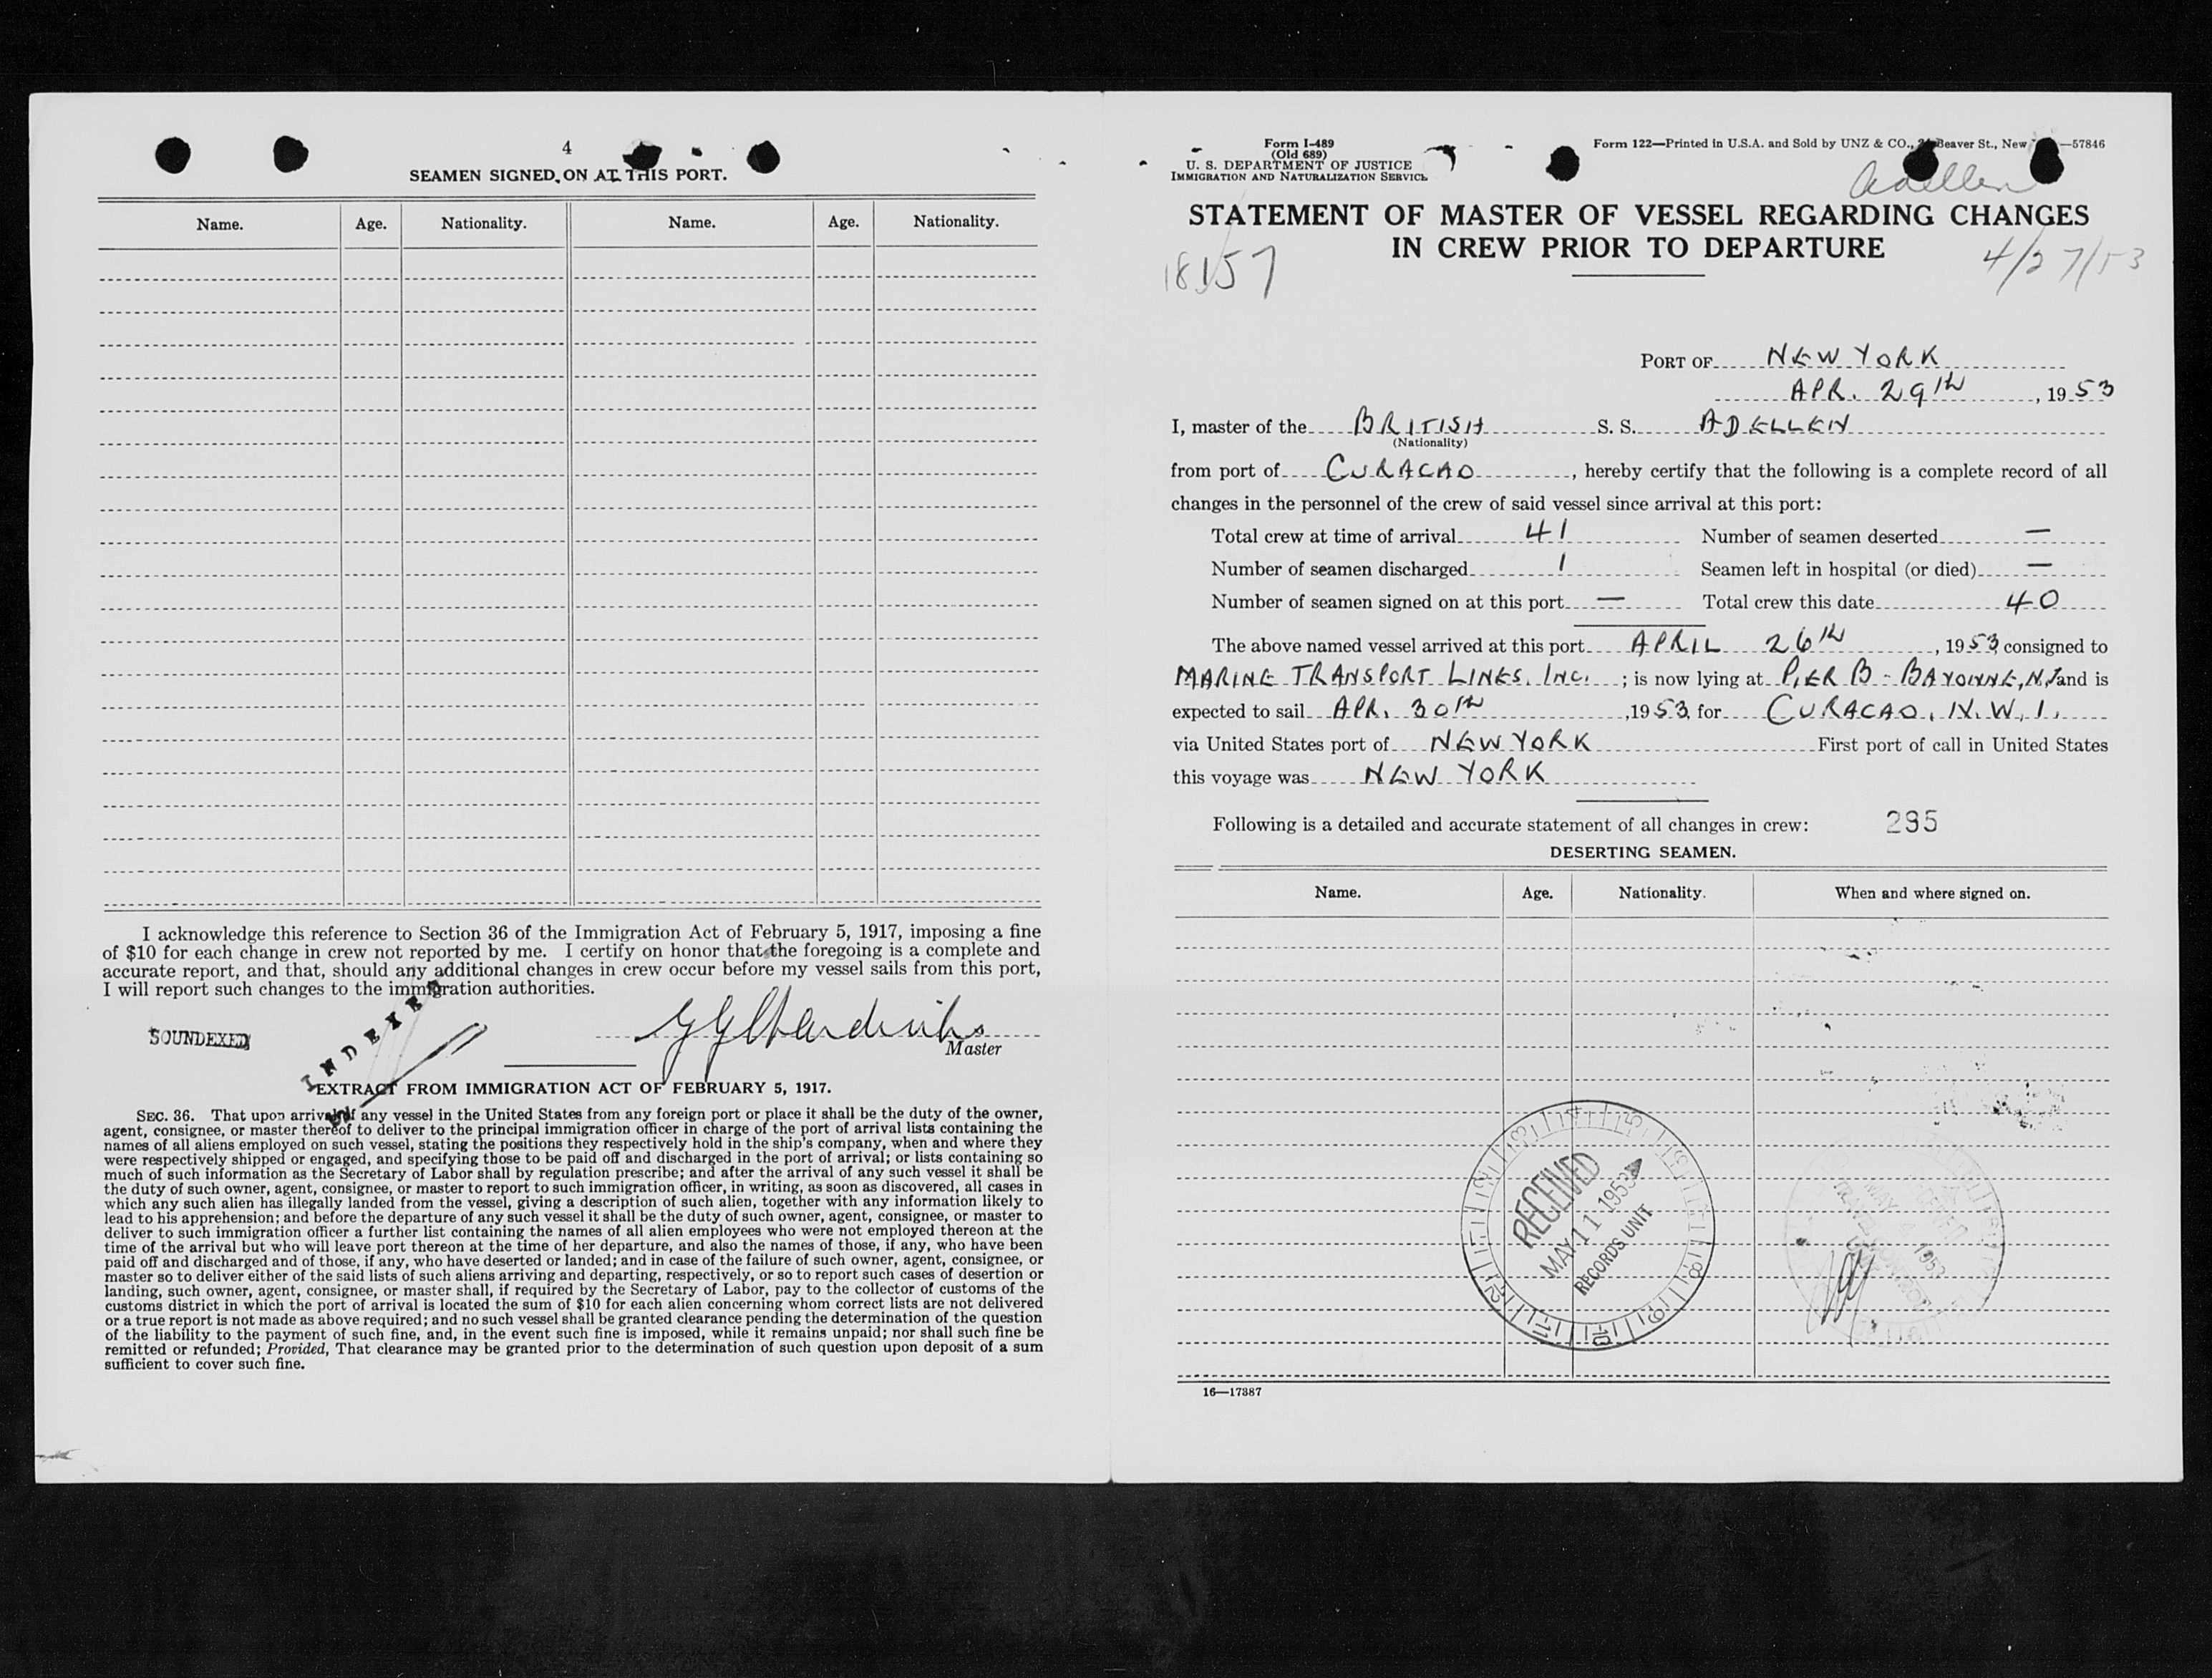 4
SEAMEN SIGNED ON AT THIS PORT.
Name. Age. Nationality. Name. Age. Nationality.
I acknowledge this reference to Section 36 of the Immigration Act of February 5, 1917, imposing a fine
of $10 for each change in crew not reported by me. I certify on honor that the foregoing is a complete and
accurate report, and that, should any additional changes in crew occur before my vessel sails from this port,
I will report such changes to the immigration authorities.
SOUNDEXED
INDEXED
Master
EXTRACT FROM IMMIGRATION ACT OF FEBRUARY 5, 1917.
SEC. 36. That upon arrival of any vessel in the United States from any foreign port or place it shall be the duty of the owner,
agent, consignee, or master thereof to deliver to the principal immigration officer in charge of the port of arrival lists containing the
names of all aliens employed on such vessel, stating the positions they respectively hold in the ship's company, when and where they
were respectively shipped or engaged, and specifying those to be paid off and discharged in the port of arrival; or lists containing so
much of such information as the Secretary of Labor shall by regulation prescribe; and after the arrival of any such vessel it shall be
the duty of such owner, agent, consignee, or master to report to such immigration officer, in writing, as soon as discovered, all cases in
which any such alien has illegally landed from the vessel, giving a description of such alien, together with any information likely to
lead to his apprehension; and before the departure of any such vessel it shall be the duty of such owner, agent, consignee, or master to
deliver to such immigration officer a further list containing the names of all alien employees who were not employed thereon at the
time of the arrival but who will leave port thereon at the time of her departure, and also the names of those, if any, who have been
paid off and discharged and of those, if any, who have deserted or landed; and in case of the failure of such owner, agent, consignee, or
master so to deliver either of the said lists of such aliens arriving and departing, respectively, or so to report such cases of desertion or
landing, such owner, agent, consignee, or master shall, if required by the Secretary of Labor, pay to the collector of customs of the
customs district in which the port of arrival is located the sum of $10 for each alien concerning whom correct lists are not delivered
or a true report is not made as above required; and no such vessel shall be granted clearance pending the determination of the question
of the liability to the payment of such fine, and, in the event such fine is imposed, while it remains unpaid; nor shall such fine be
remitted or refunded; Provided, That clearance may be granted prior to the determination of such question upon deposit of a sum
sufficient to cover such fine.
Form I-489
(Old 689)
U. S. DEPARTMENT OF JUSTICE
IMMIGRATION AND NATURALIZATION SERVICE
Form 122—Printed in U.S.A. and Sold by UNZ & CO., Beaver St., New —57846
Adellen
STATEMENT OF MASTER OF VESSEL REGARDING CHANGES
IN CREW PRIOR TO DEPARTURE
18157
4/27/53
PORT OF NEW YORK
APR. 29th, 1953
I, master of the BRITISH S. S. ADELLEN
(Nationality)
from port of CURACAO, hereby certify that the following is a complete record of all
changes in the personnel of the crew of said vessel since arrival at this port:
Total crew at time of arrival 41 Number of seamen deserted —
Number of seamen discharged 1 Seamen left in hospital (or died) —
Number of seamen signed on at this port — Total crew this date 40
The above named vessel arrived at this port APRIL 26th, 1953, consigned to
MARINE TRANSPORT LINES. INC. ; is now lying at PIER B - BAYONNE, N.J. and is
expected to sail APR. 30th, 1953, for CURACAO, N.W.I.
via United States port of NEW YORK First port of call in United States
this voyage was NEW YORK
Following is a detailed and accurate statement of all changes in crew: 295
DESERTING SEAMEN.
Name. Age. Nationality. When and where signed on.
RECEIVED
MAY 11 1953
RECORDS UNIT
16—17387